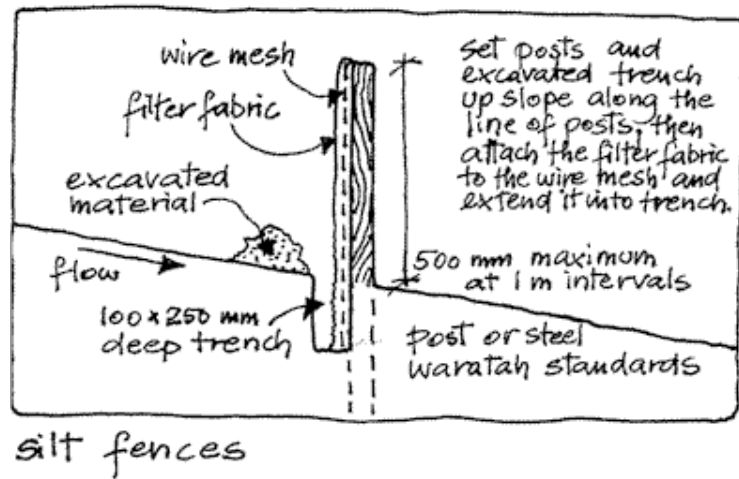 wire mesh
filter fabric
excavated
material
flow
100 x 250 mm
deep trench
set posts and
excavated trench
up slope along the
line of posts, then
attach the filter fabric
to the wire mesh and
extend it into trench.
500 mm maximum
at 1 m intervals
post or steel
waratah standards
silt fences